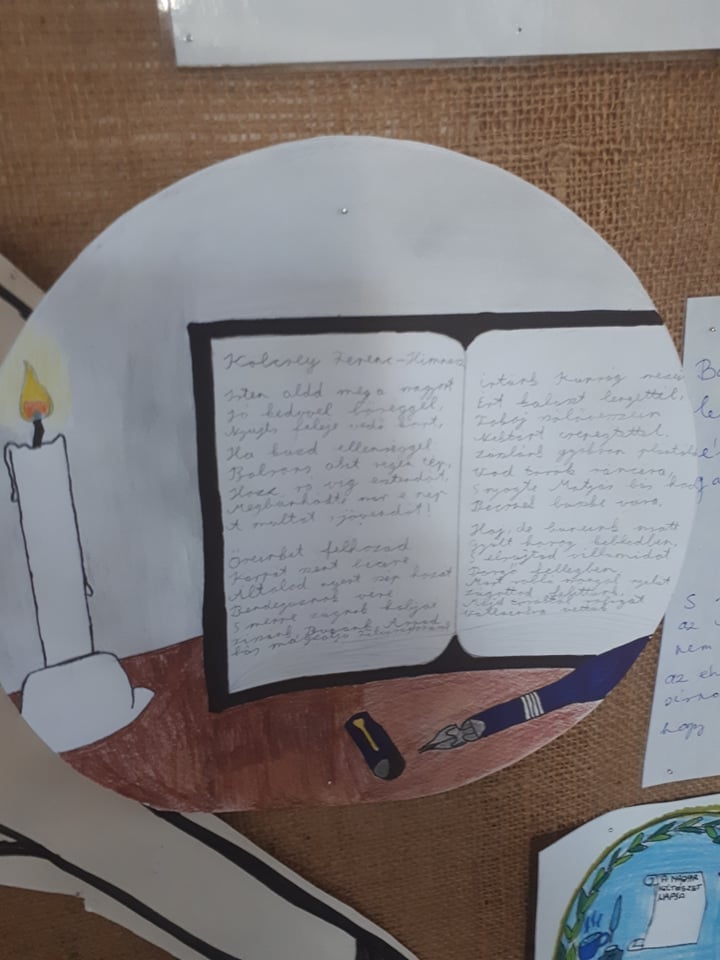 Kölcsey Ferenc-Himnusz
Isten áldd meg a magyart
Jó kedvvel bőséggel,
Nyujts feléje védő kart,
Ha küzd ellenséggel.
Balsors akit régen tép,
Hozz rá víg esztendőt,
Megbünhödte már e nép
A multat s jövendőt!
Őseinket felhozád
Kárpát szent bércére
Általad nyert szép hazát
Bendegúznak vére
S merre zúgnak habjai
Értünk Kunság mezein
Ért kalászt lengettél,
Tokaj szőlővesszein
Nektárt csepegtettél.
Zászlónk gyakran
Vad török sáncára,
S nyögte Mátyás bús
Bécsnek büszke vára.
Haj, de bűneink miatt
Gyúlt harag kebledben,
S elsújtád villámidat
Dörgő fellegben
Most rabló mongol nyilát
Zúgattad felettünk,
Vállainkra vettük
Ba
le
S
az
nem
az
hogy
A MAGYAR
KÖLTÉSZET
NAPJA